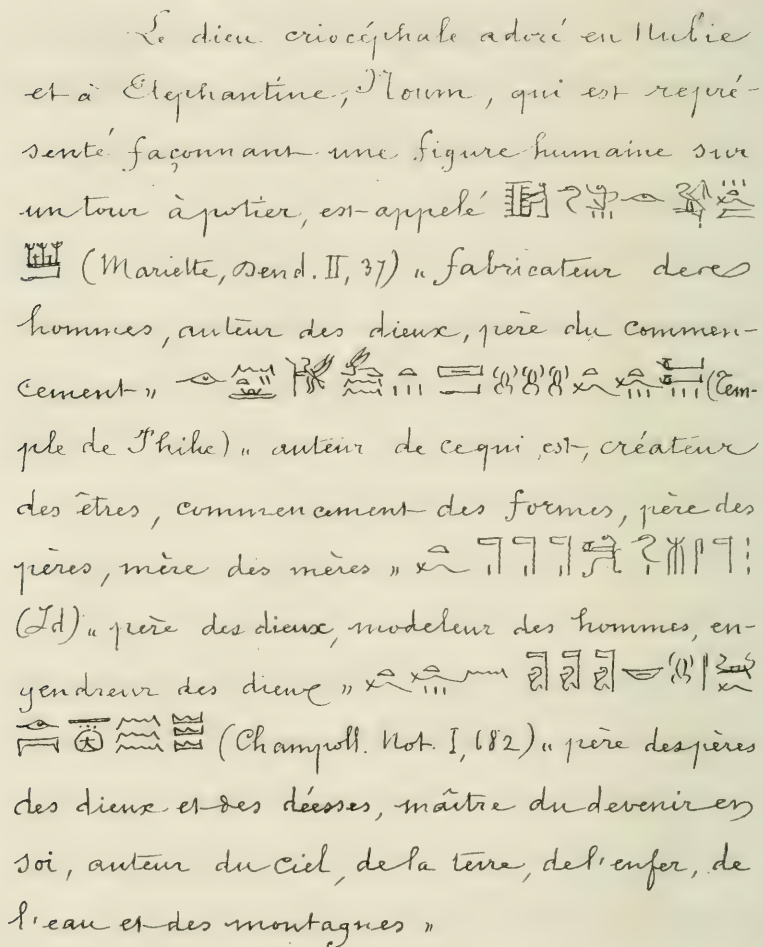 Le dieu criocéphale adoré en Nubie
et à Elephantine, Noum, qui est repré-
senté façonnant une figure humaine sur
un tour à potier, est appelé
(Mariette, Dend. II, 37) „ fabricateur des
hommes, auteur des dieux, père du commen-
cement „ (Tem-
ple de Philæ) „ auteur de ce qui est, créateur
des êtres, commencement des formes, père des
pères, mère des mères „
(Id) „ père des dieux, modeleur des hommes, en-
gendreur des dieux „
(Champoll. Not. I, 682) „ père des pères
des dieux et des déesses, maître du devenir en
soi, auteur du ciel, de la terre, de l'enfer, de
l'eau et des montagnes „